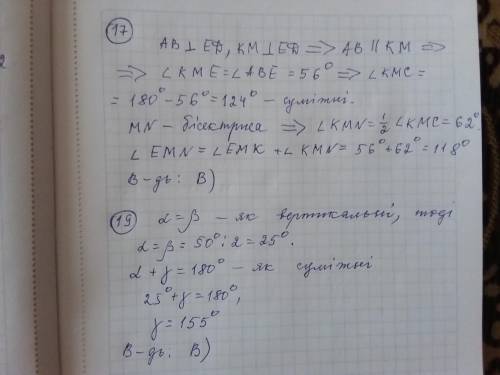 17
AB⊥ED, KM⊥ED ⟹ AB∥KM ⟹
⟹ ∠KME=∠ABE=56° ⟹ ∠KMC=
= 180°-56°=124° - суміжні.
MN - бісектриса ⟹ ∠KMN=½∠KMC=62°.
∠EMN=∠EMK+∠KMN=56°+62°=118°
В-дь: В)
19
α=β - як вертикальні, тоді
α=β=50°:2=25°.
α+γ=180° - як суміжні
25°+γ=180°,
γ=155°
В-дь: В)